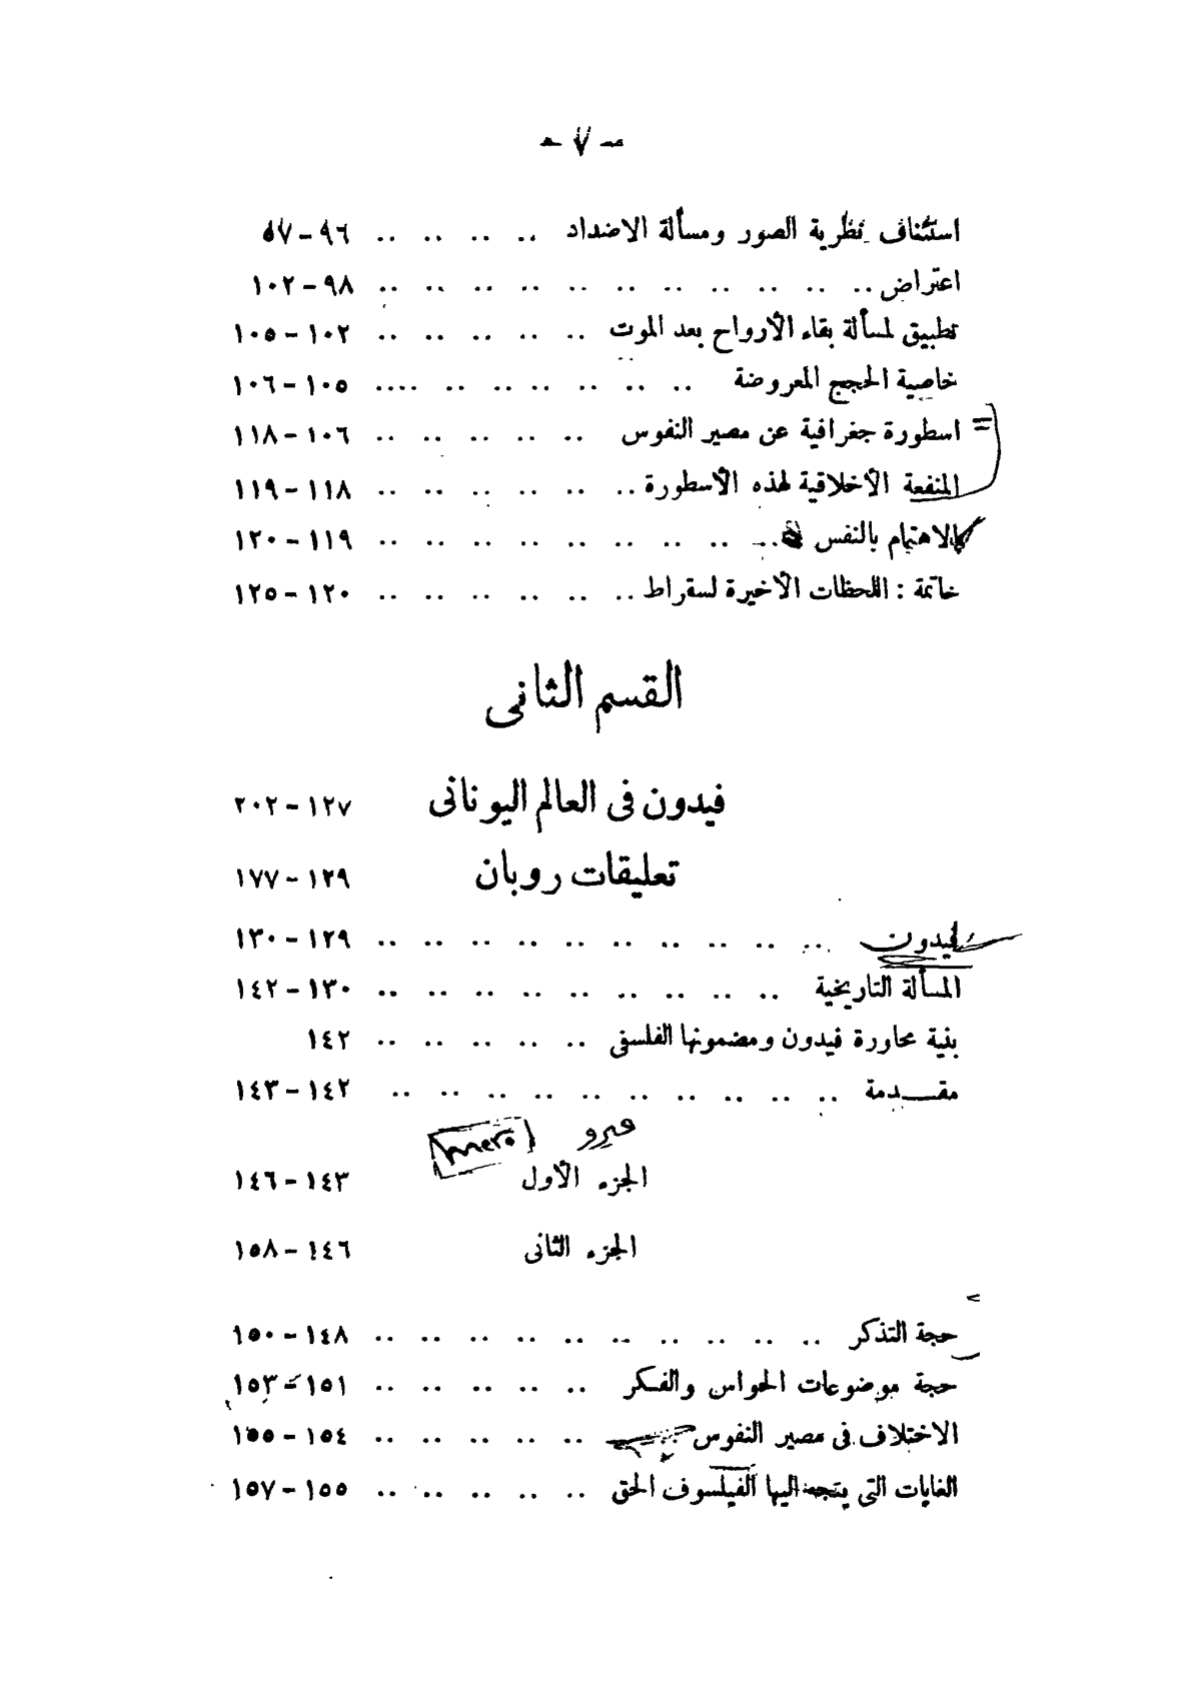 - ٧ -
استئناف نظرية الصور ومسألة الاضداد .. .. .. .. ٩٦ - ٩٧
اعتراض .. .. .. .. .. .. .. .. .. .. .. ٩٨ - ١٠٢
تطبيق لمسألة بقاء الأرواح بعد الموت .. .. .. .. .. ١٠٢ - ١٠٥
خاصية الحجج المعروضة .. .. .. .. .. .. .... ١٠٥ - ١٠٦
اسطورة جغرافية عن مصير النفوس .. .. .. .. .. ١٠٦ - ١١٨
المنفعة الأخلاقية لهذه الأسطورة .. .. .. .. .. .. ١١٨ - ١١٩
الاهتمام بالنفس .. .. .. .. .. .. .. .. .. ١١٩ - ١٢٠
خاتمة : اللحظات الأخيرة لسقراط .. .. .. .. .. .. ١٢٠ - ١٢٥
القسم الثانى
فيدون فى العالم اليونانى ١٢٧ - ٢٠٢
تعليقات روبان ١٢٩ - ١٧٧
فيدون .. .. .. .. .. .. .. .. .. .. ١٢٩ - ١٣٠
المسألة التاريخية .. .. .. .. .. .. .. .. .. ١٣٠ - ١٤٢
بنية محاورة فيدون ومضمونها الفلسفى .. .. .. .. .. ١٤٢
مقـــدمة .. .. .. .. .. .. .. .. .. .. ١٤٢ - ١٤٣
الجزء الأول ١٤٣ - ١٤٦
الجزء الثانى ١٤٦ - ١٥٨
حجة التذكر .. .. .. .. .. .. .. .. .. .. ١٤٨ - ١٥٠
حجة موضوعات الحواس والفكر .. .. .. .. .. ١٥١ - ١٥٣
الاختلاف فى مصير النفوس .. .. .. .. .. ١٥٤ - ١٥٥
الغايات التى يتجه اليها الفيلسوف الحق .. .. .. .. .. ١٥٥ - ١٥٧